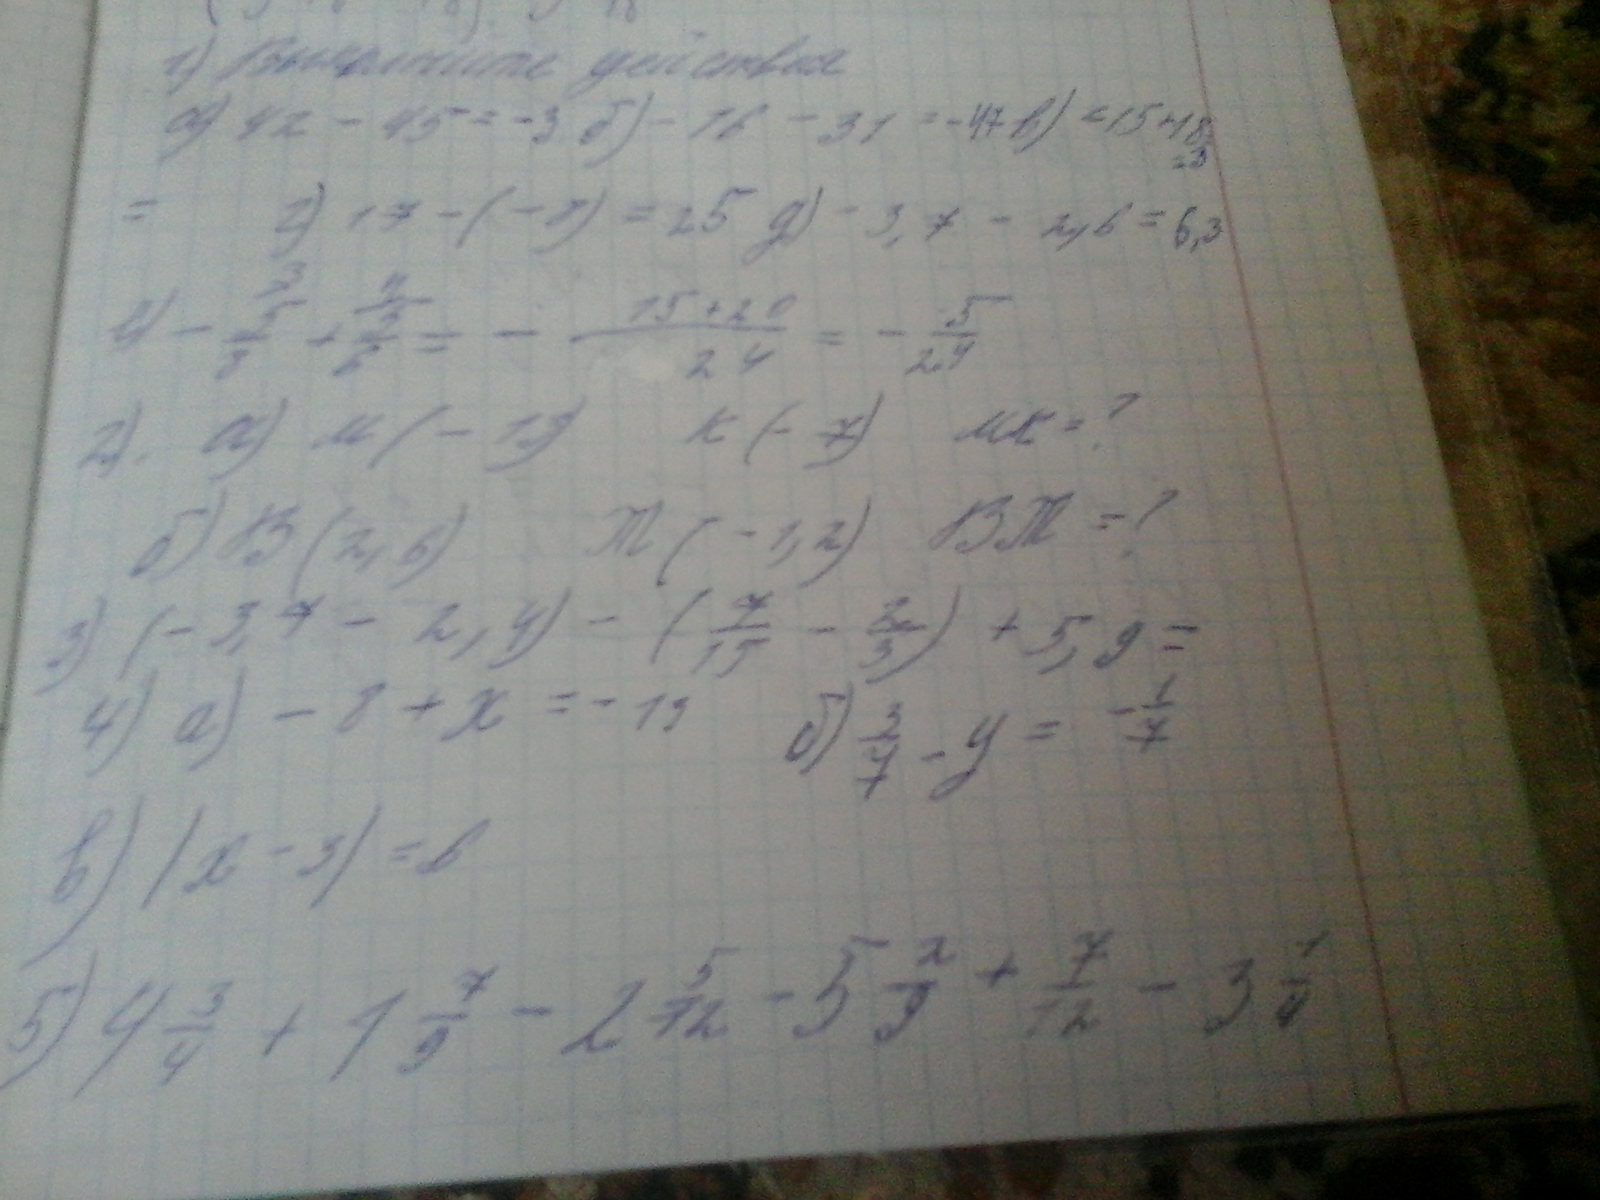 1) Выполните действия
а) 42 - 45 = -3 б) - 16 - 31 = -47 в) -15+18
=3
= г) 17 - (-8) = 25 д) - 3,7 - 2,6 = 6,3
- 5/8 + 5/6 = - 15+20/24 = - 5/24
2). а) М (- 13) К (- 7) МК = ?
б) В (2, 6) Т (- 1, 2) ВТ = ?
3) (- 3,7 - 2, 4) - (7/15 - 2/3) + 5, 9 =
4) а) - 8 + x = - 13 б) 3/4 - y = - 1/7
в) |x - 3| = 6
5) 4 3/4 + 1 7/9 - 2 5/12 - 5 2/9 + 7/12 - 3 1/9